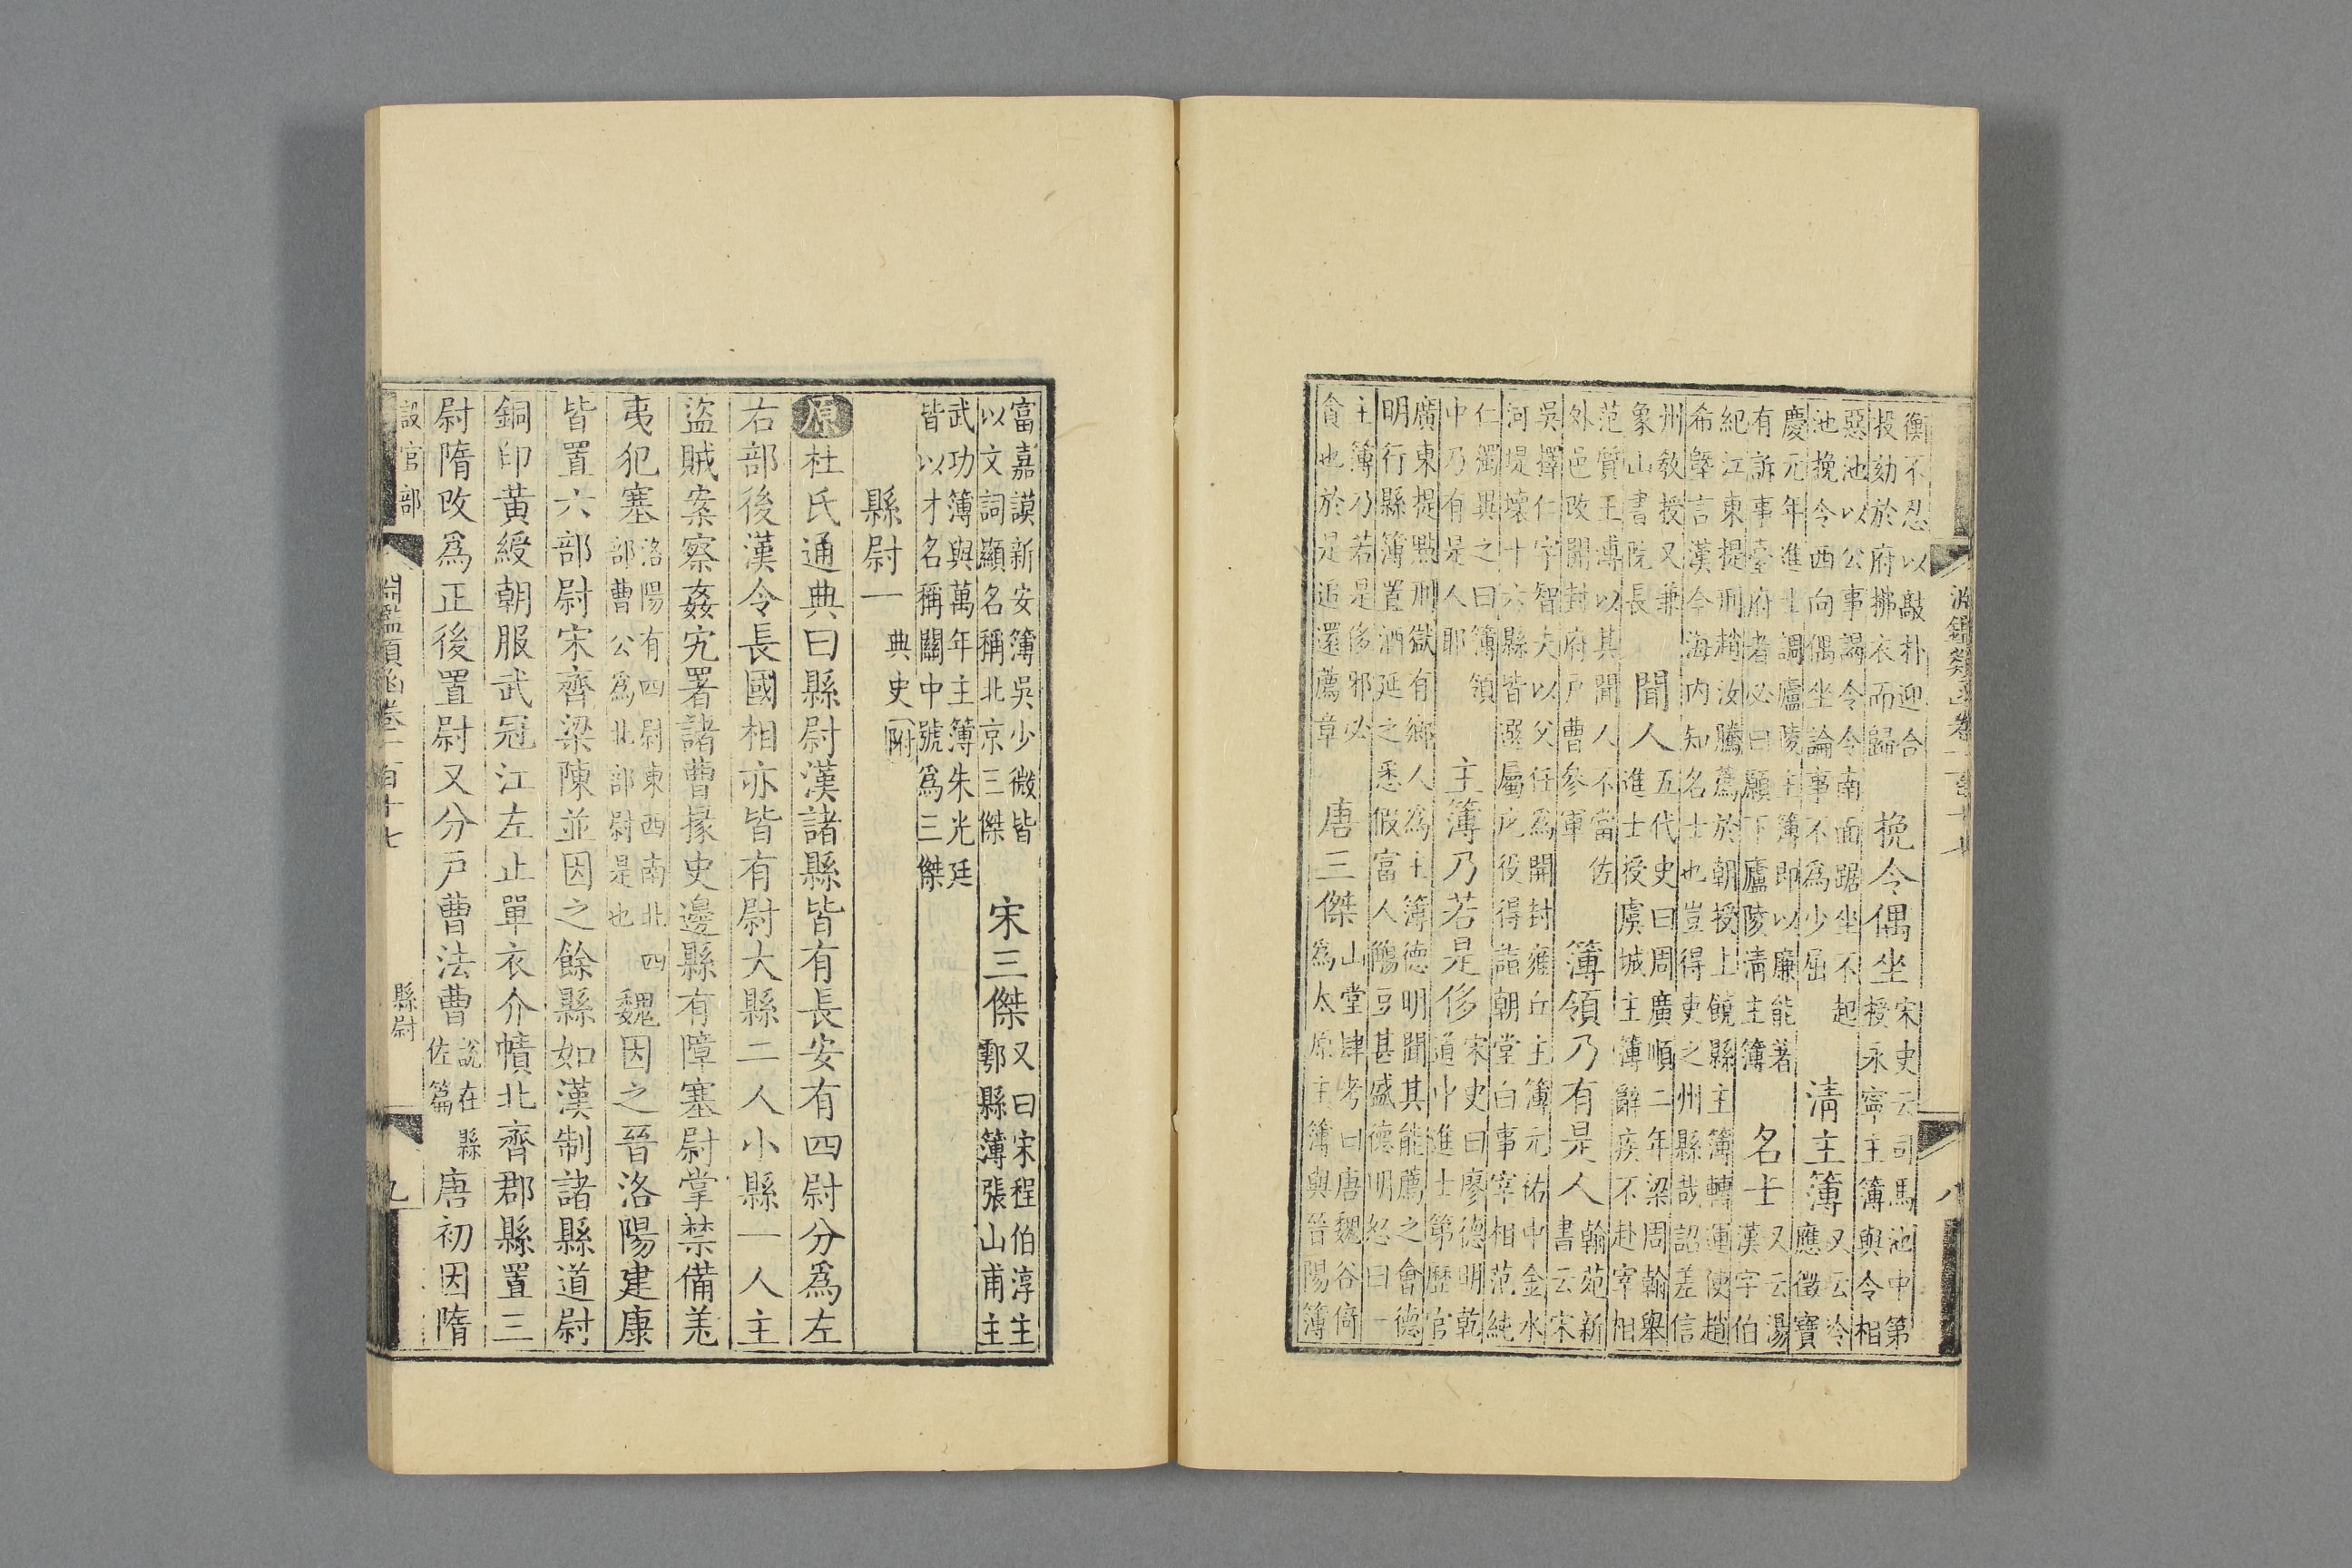 淵鑑類函卷一百十七 八
衡不忍以敲朴迎合
投劾於府拂衣而歸
挽令偶坐
宋史云司馬池中第
授永寧主簿與令相
惡池以公事謁令令南面踞坐不起
池挽令西向偶坐論事不爲少屈
清主簿
又云冷
應徵寶
慶元年進士調廬陵主簿卽以廉能著
有訴事臺府者必曰願下廬陵清主簿
名士
又云湯
漢字伯
紀江東提刑趙汝騰薦於朝授上饒縣主簿轉運使趙
希塈言漢今海內知名士也豈得吏之州縣哉詔差信
州敎授又兼
象山書院長
聞人
五代史曰周廣順二年梁周翰舉
進士授虞城主簿辭疾不赴宰相
范質王溥以其聞人不當佐
外邑改開封府戸曹參軍
簿領乃有是人
翰苑新
書云宋
吳擇仁字智夫以父任爲開封雍丘主簿元祐中金水
河堤壞十六縣皆選屬庀役得詣朝堂白事宰相范純
仁獨與之曰簿領
中乃有是人耶
主簿乃若是侈
宋史曰廖德明乾
道中進士第歷官
廣東提點刑獄有鄉人爲主簿德明聞其能薦之會德
明行縣簿置酒延之悉假富人觴豆甚盛德明怒曰一
主簿乃若是侈邪必
貪也於是追還薦章
唐三傑
山堂肆考曰唐魏谷倚
爲太原主簿與晉陽簿
富嘉謨新安簿吳少微皆
以文詞顯名稱北京三傑
宋三傑
又曰宋程伯淳主
鄠縣簿張山甫主
武功簿與萬年主簿朱光廷
皆以才名稱關中號爲三傑
縣尉一 典史附
原杜氏通典曰縣尉漢諸縣皆有長安有四尉分爲左
右部後漢令長國相亦皆有尉大縣二人小縣一人主
盜賊案察姦宄署諸曹掾史邊縣有障塞尉掌禁備羌
夷犯塞
洛陽有四尉東西南北四
部曹公爲北部尉是也
魏因之晉洛陽建康
皆置六部尉宋齊梁陳並因之餘縣如漢制諸縣道尉
銅印黃綬朝服武冠江左止單衣介幘北齊郡縣置三
尉隋改爲正後置尉又分戸曹法曹
說在縣
佐篇
唐初因隋
設官部
淵鑑類函卷一百十七 縣尉 九